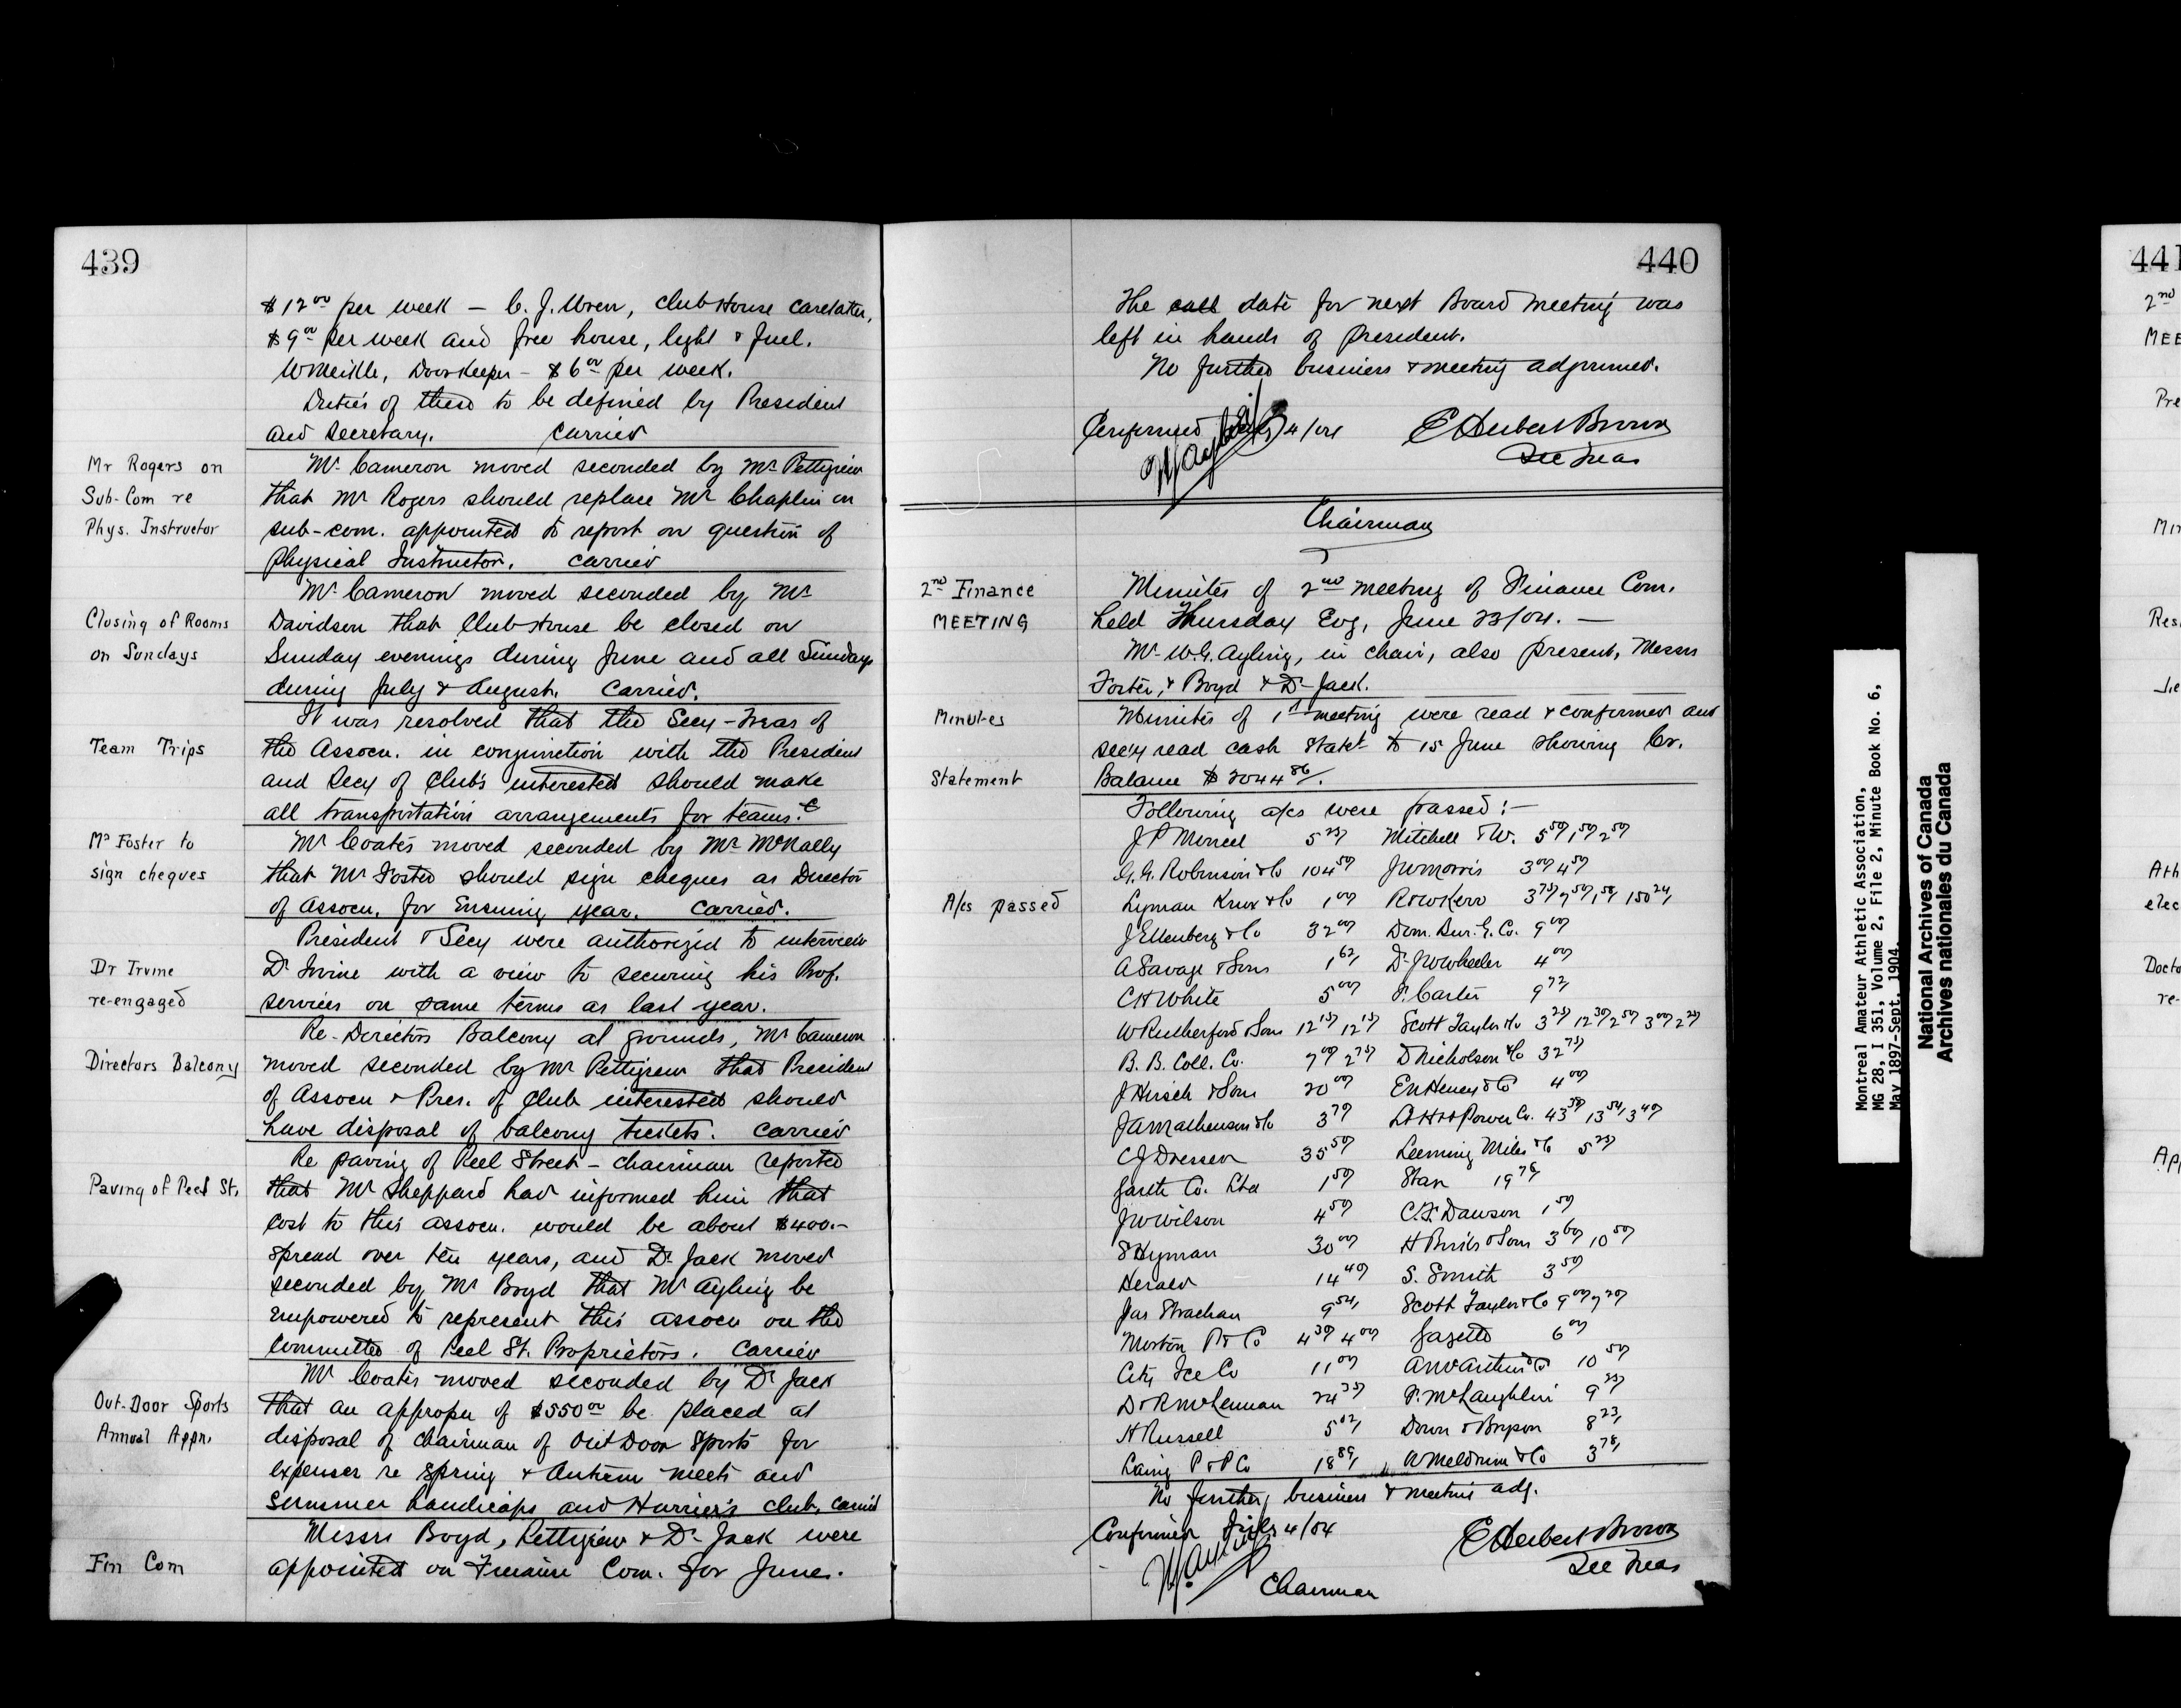 439
$12.00 per week — C. J. Wren, Club House Caretaker,
$9.00 per week and free house, light & fuel.
W Meikle, Doorkeeper - $6.00 per week.
Duties of these to be defined by President
and Secretary. Carried
Mr Rogers on
Sub-Com re
Phys. Instructor
Mr Cameron moved seconded by Mr Pettigrew
that Mr Rogers should replace Mr Chaplin on
sub-com. appointed to report on question of
Physical Instructor. Carried
Closing of Rooms
on Sundays
Mr Cameron moved seconded by Mr
Davidson that Club House be closed on
Sunday evenings during June and all Sundays
during July & August. Carried.
Team Trips
It was resolved that the Secy-Treas of
the Assocn. in conjunction with the President
and Secy of Clubs interested should make
all transportation arrangements for teams. C
Mr Foster to
sign cheques
Mr Coates moved seconded by Mr McNally
that Mr Foster should sign cheques as Director
of Assocn. for Ensuing year. Carried.
Dr Irvine
re-engaged
President & Secy were authorized to interview
Dr Irvine with a view to securing his Prof.
services on same terms as last year.
Directors Balcony
Re-Directors Balcony at grounds, Mr Cameron
moved seconded by Mr Pettigrew that President
of Assocn & Pres. of Club interested should
have disposal of balcony tickets. Carried
Paving of Peel St.
Re paving of Peel Street - Chairman reported
that Mr Sheppard had informed him that
cost to this assocn. would be about $400.-
spread over ten years, and Dr Jack moved
seconded by Mr Boyd that Mr Ayling be
empowered to represent this assocn on the
Committee of Peel St. Proprietors. Carried
Out-Door Sports
Annual Appn.
Mr Coates moved seconded by Dr Jack
that an appropn of $550.00 be placed at
disposal of Chairman of Out Door Sports for
expenses re Spring & Autumn meets and
Summer handicaps and Harrier's Club. Carried
Fin Com
Messrs Boyd, Pettigrew & Dr Jack were
appointed on Finance Com. for June.
440
The call date for next Board Meeting was
left in hands of President.
No further business & meeting adjourned.
Confirmed July 4/04 E Herbert Brown
W G Ayling Sec Treas
Chairman
2nd Finance
MEETING
Minutes of 2nd meeting of Finance Com.
held Thursday Evg, June 23/04. —
Mr W. G. Ayling, in chair, also present, Messrs
Foster, & Boyd & Dr Jack.
Minutes
Statement
Minutes of 1st meeting were read & confirmed and
secy read cash statt to 15 June showing Cr.
Balance $2044 86/.
A/cs passed
Following a/cs were passed:—
5 25/ Mitchell & W. 5 50/ 1 50/ 2 50/
G. A. Robinson & Co 104 50/ J W Morris 3 00/ 4 50/
Lyman Knox & Co 1 00/ R & W Kerr 3 75/ 7 50/ 150 24/
J Ellenberg & Co 32 00/ 9 00/
A Savage & Sons 1 62/ Dr J W Wheeler 4 00/
C H White 5 00/ P. Carter 9 72/
W Rutherford & Sons 12 15/ 12 15/ Scott Taylor & Co 3 25/ 12 30/ 2 50/ 3 00/ 2 25/
B. B. Coll. Co. 7 00/ 2 75/ D Nicholson & Co 32 75/
J Hirsch & Sons 20 00/ E N Heney & Co 4 00/
J A Mathewson & Co 3 70/ Lt H & Power Co. 43 58/ 13 54/ 3 40/
C J Dresser 35 50/ Leeming Miles & Co 5 25/
Garth Co. Ltd 1 50/ Star 19 76/
J W Wilson 4 50/ C. F. Dawson 1 50/
S Hyman 30 00/ H Birks & Sons 3 60/ 10 50/
Herald 14 40/ S. Smith 3 50/
Jas Strachan 9 54/ Scott Taylor & Co 9 00/ 7 20/
Morton P & Co 4 30/ 4 00/ Gazette 6 00/
City Ice Co 11 00/ 10 50/
D & R McLennan 24 35/ P. McLaughlin 9 25/
H Russell 5 02/ 8 23/
Laing P & P Co 18 89/ A Meldrum & Co 3 78/
No further business & meeting adj.
Confirmed July 4/04 E Herbert Brown
W G Ayling Sec Treas
Chairman
Montreal Amateur Athletic Association,
MG 28, I 351, Volume 2, File 2, Minute Book No. 6,
May 1897-Sept. 1904.
National Archives of Canada
Archives nationales du Canada
441
2nd